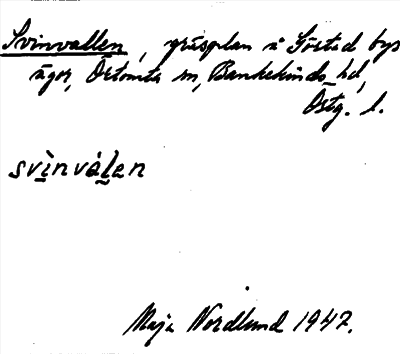 Svinvallen, gräsplan å Görstad bys
ägor, Örtomta sn, Bankekinds hd,
Östg. l.
svìnvàlen
Maja Nordlund 1947.